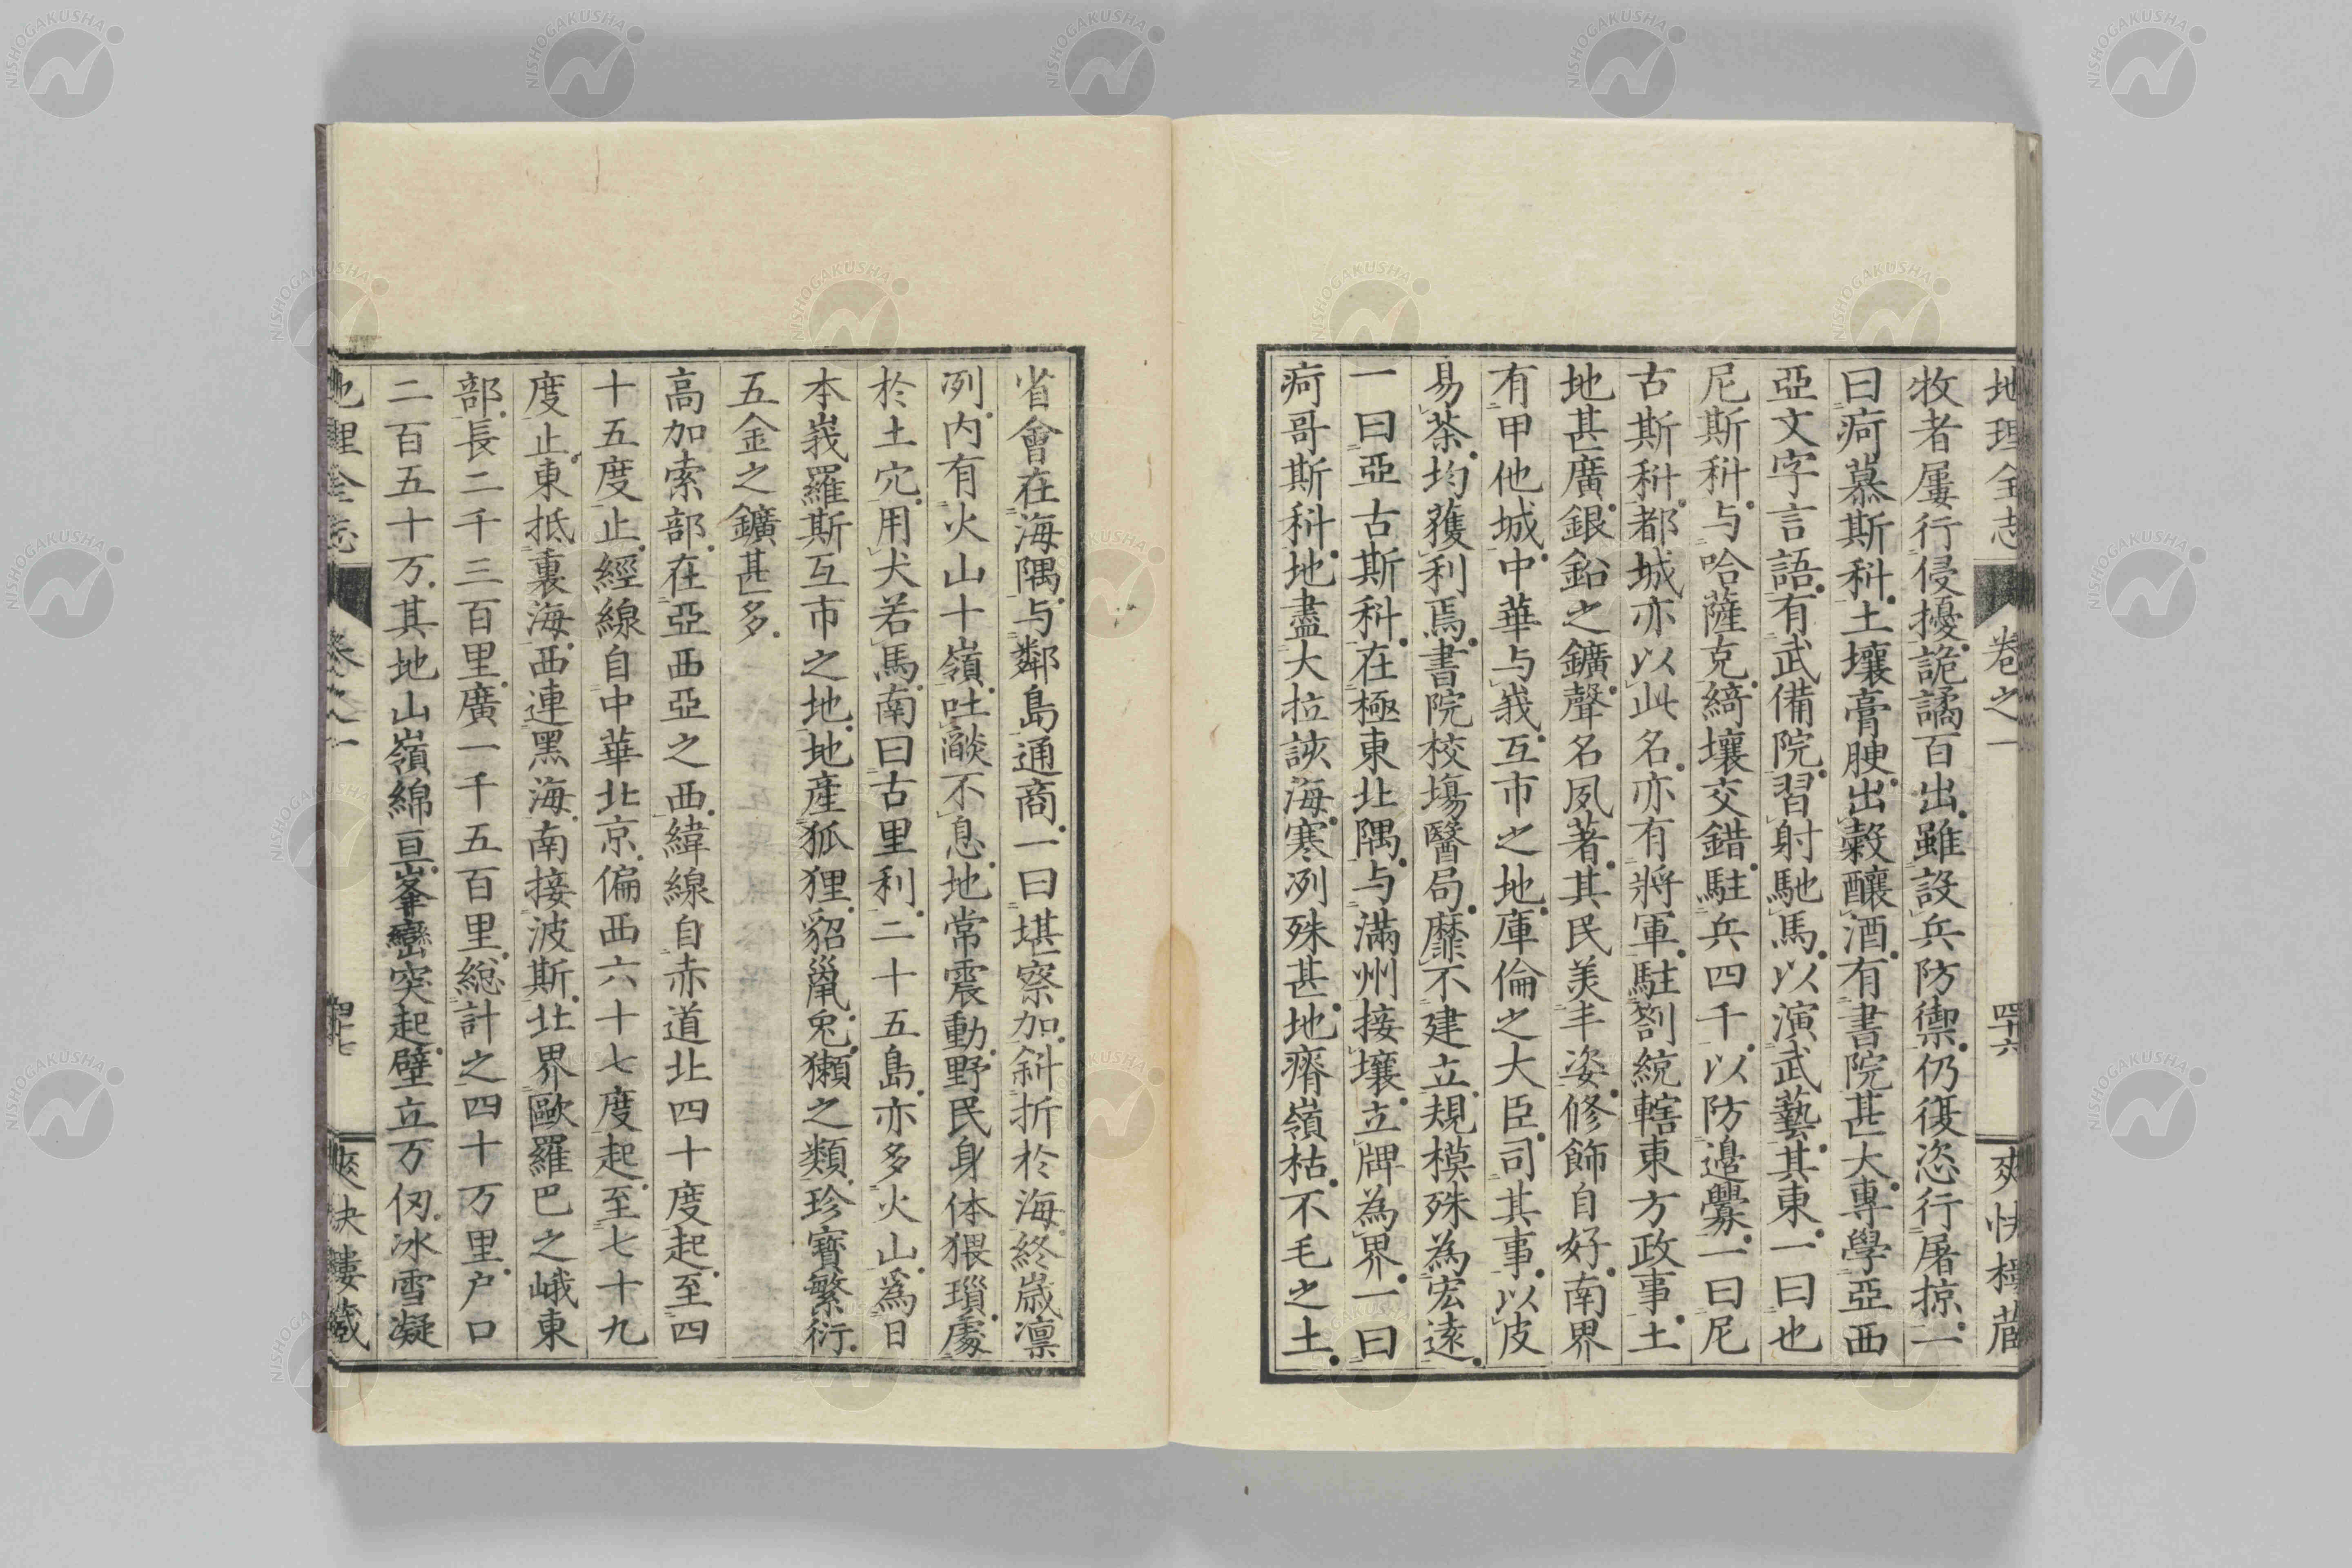 地理全志 卷之一 四十六 爽快樓藏
牧者屢行侵擾詭譎百出雖設兵防禦仍復恣行屠掠一
曰疴慕斯科土壤膏腴出穀釀酒有書院甚大專學亞西
亞文字言語有武備院習射馳馬以演武藝其東一曰也
尼斯科与哈薩克綺壤交錯駐兵四千以防邊釁一曰尼
古斯科都城亦以此名亦有將軍駐劄統轄東方政事土
地甚廣銀鉛之鑛聲名夙著其民美丰姿修飾自好南界
有甲他城中華与峩互市之地庫倫之大臣司其事以皮
易茶均獲利焉書院校塲醫局靡不建立規模殊為宏遠
一曰亞古斯科在極東北隅与滿州接壤立牌為界一曰
疴哥斯科地盡大拉詼海寒冽殊甚地瘠嶺枯不毛之土
省會在海隅与鄰島通商一曰堪察加斜折於海終歲凛
冽內有火山十嶺吐燄不息地常震動野民身体猥瑣處
於土穴用犬若馬南曰古里利二十五島亦多火山爲日
本峩羅斯互市之地地產狐狸貂鼠兔獺之類珍寶繁衍
五金之鑛甚多
高加索部在亞西亞之西緯線自赤道北四十度起至四
十五度止經線自中華北京偏西六十七度起至七十九
度止東抵裏海西連黑海南接波斯北界歐羅巴之峨東
部長二千三百里廣一千五百里總計之四十万里户口
二百五十万其地山嶺綿亘峯巒突起壁立万仞冰雪凝
地理全志 卷之一 四十七 爽快樓藏
NISHOGAKUSHA